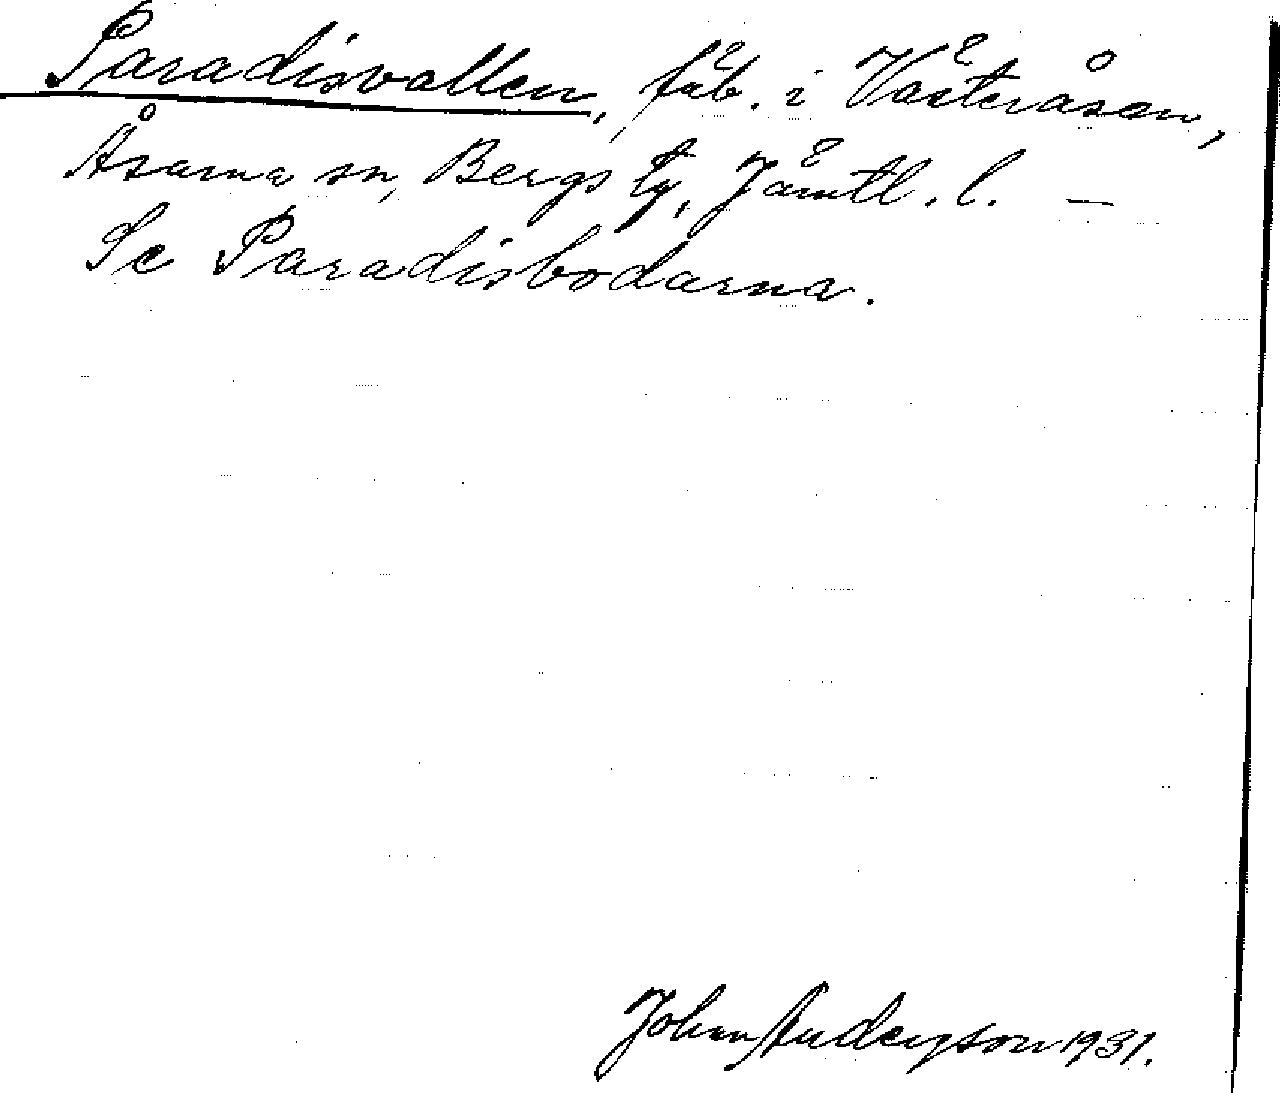 Paradisvallen, fäb. i Västeråsen,
Åsarna sn, Bergs tg, Jämtl. l. —
Se Paradisbodarna.
Johan Andersson 1931.